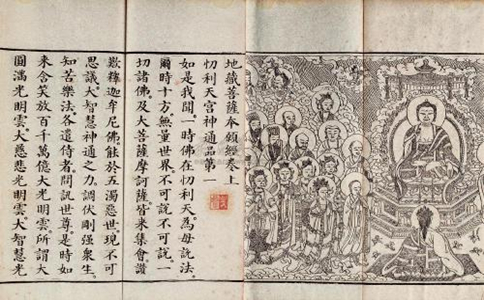 地藏菩薩本願經卷上
忉利天宮神通品第一
如是我聞。一時佛在忉利天。為母說法。
爾時十方無量世界。不可說不可說。一
切諸佛。及大菩薩摩訶薩。皆來集會。讚
歎釋迦牟尼佛。能於五濁惡世。現不可
思議大智慧神通之力。調伏剛强衆生。
知苦樂法。各遣侍者。問訊世尊。是時如
來含笑。放百千萬億大光明雲。所謂大
圓滿光明雲。大慈悲光明雲。大智慧光